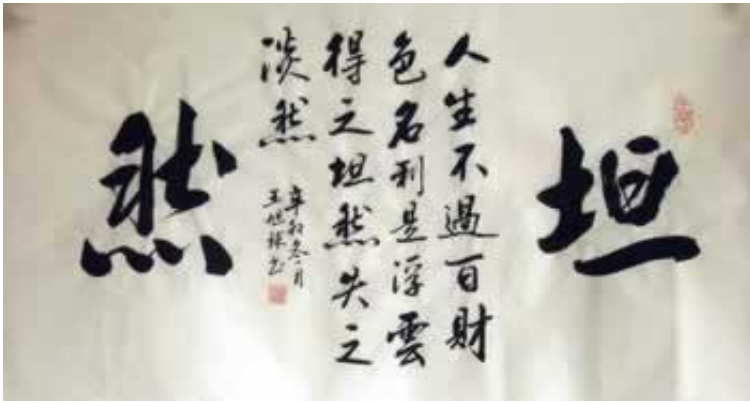 坦
人生不過百財
色名利是浮雲
得之坦然失之
淡然
辛卯冬月
王旭林書
然